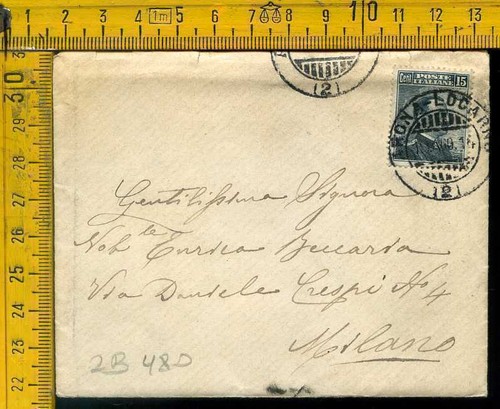 (2)
Cent. POSTE ITALIANE 15
ARONA-LOCARNO
(2)
Gentilissima Signora
Nob.le Enrica Beccaria
Via Daniele Crespi No 4
Milano
2B 480
1m 4 5 6 7 8 9 10 11 12 13
30 29 28 27 26 25 24 23 22